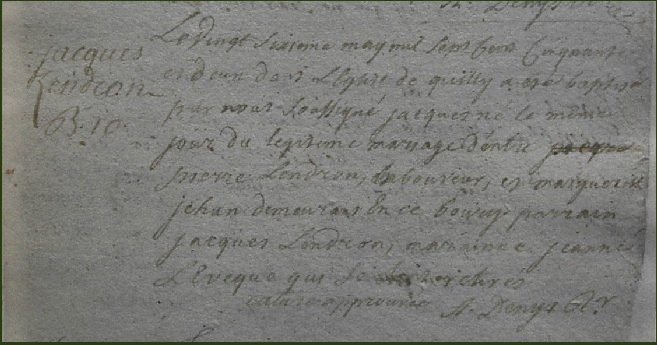 jacques
Lendron
B. 10.
Le vingt sixieme may mil sept cent cinquante
et deux dans L'eglise de quilly a eté baptisé
par nous soussigné jacques né le même
jour du legitime mariage d'entre
pierre Lendron, laboureur, et marguerite
jehan demeurans En ce bourg parrain
jacques Lendron, maraine jeanne
L'Eveque qui se
rature approuvée A. Denys Rr.